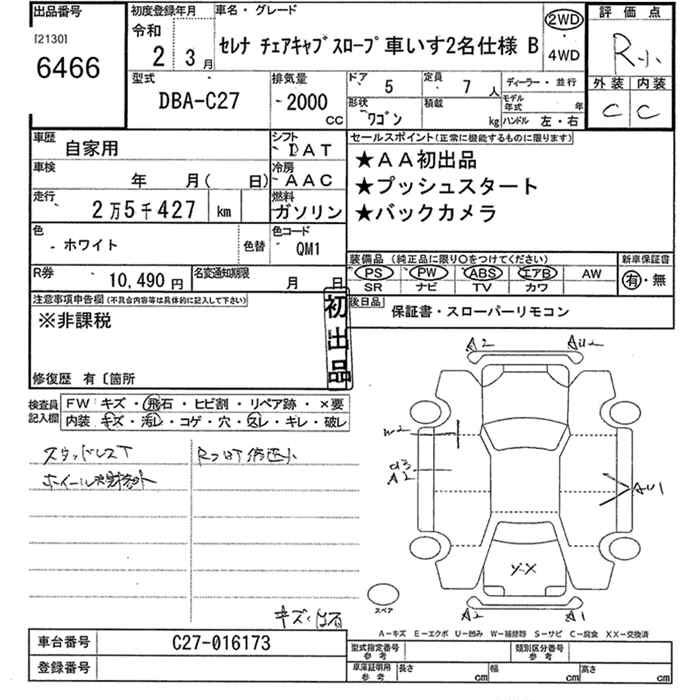 出品番号
[2130]
6466
初度登録年月
令和
2 3月
車名・グレード
セレナ チェアキャブスロープ 車いす2名仕様 B
2WD
・
4WD
評価点
R小
外装 内装
C C
型式
DBA-C27
排気量
2000
cc
ドア
5
定員
7
人
ディーラー・並行
形状
ワゴン
積載
kg
モデル年式
年
ハンドル 左・右
車歴
自家用
シフト
DAT
車検
年 月( 日)
冷房
AAC
走行
2万5千427 km
燃料
ガソリン
色
ホワイト
色替
色コード
QM1
R券
10,490円
名変通知期限
月 日
セールスポイント(正常に機能するものに限ります)
★AA初出品
★プッシュスタート
★バックカメラ
装備品(純正品に限り〇をつけてください)
PS PW ABS エアB AW
SR ナビ TV カワ
新車保証書
有・無
後日品
保証書・スローパーリモコン
注意事項申告欄(不具合内容等は具体的に記入して下さい)
※非課税
初出品
修復歴 有〔箇所
検査員記入欄
FW キズ・飛石・ヒビ割・リペア跡・×要
内装 キズ・汚レ・コゲ・穴・スレ・キレ・破レ
スタッドレスT
A2
AU2
W2
A2
AU1
Y-X
A2
A1
スペア
A-キズ E-エクボ U-凹み W-補修跡 S-サビ C-腐食 XX-交換済
車台番号
C27-016173
登録番号
型式指定番号
参考
類別区分番号
参考
車庫証明用
参考
長さ
cm
幅
cm
高さ
cm